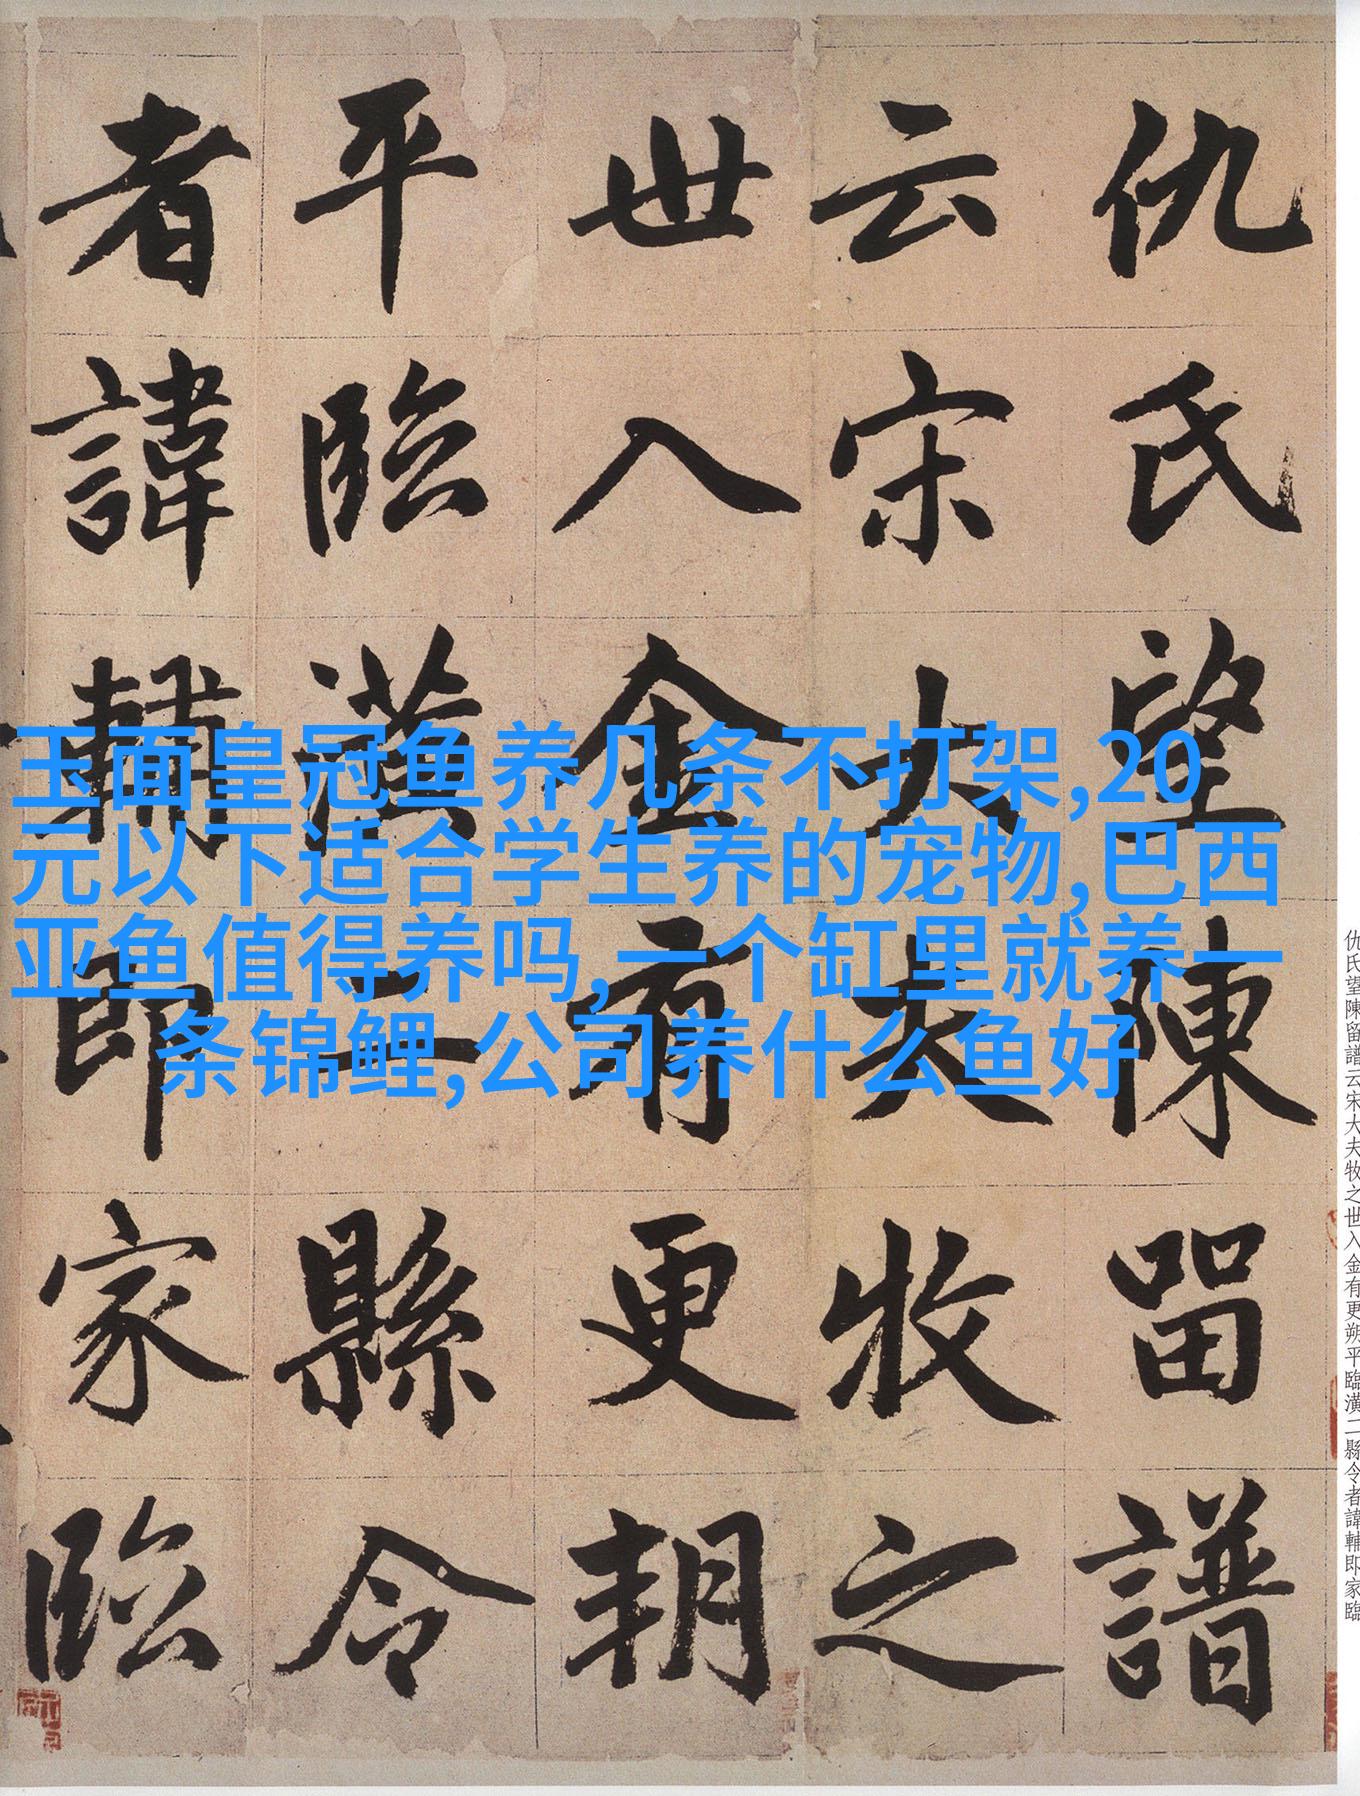 玉面皇冠鱼养几条不打架,20
元以下适合学生养的宠物,巴西
亚鱼值得养吗,一个缸里就养一
条锦鲤,公司养什么鱼好
仇氏望陳留譜
云宋大夫牧之
世入金有更朔
平臨潢二縣令
者諱輔即家臨
仇氏望陳留譜云宋大夫牧之世入金有更朔平臨潢二縣令者諱輔即家臨